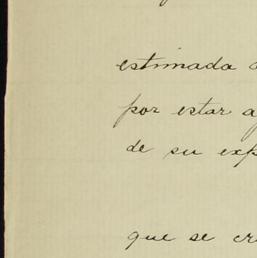 estimada
por estar
de su exp
que se cr